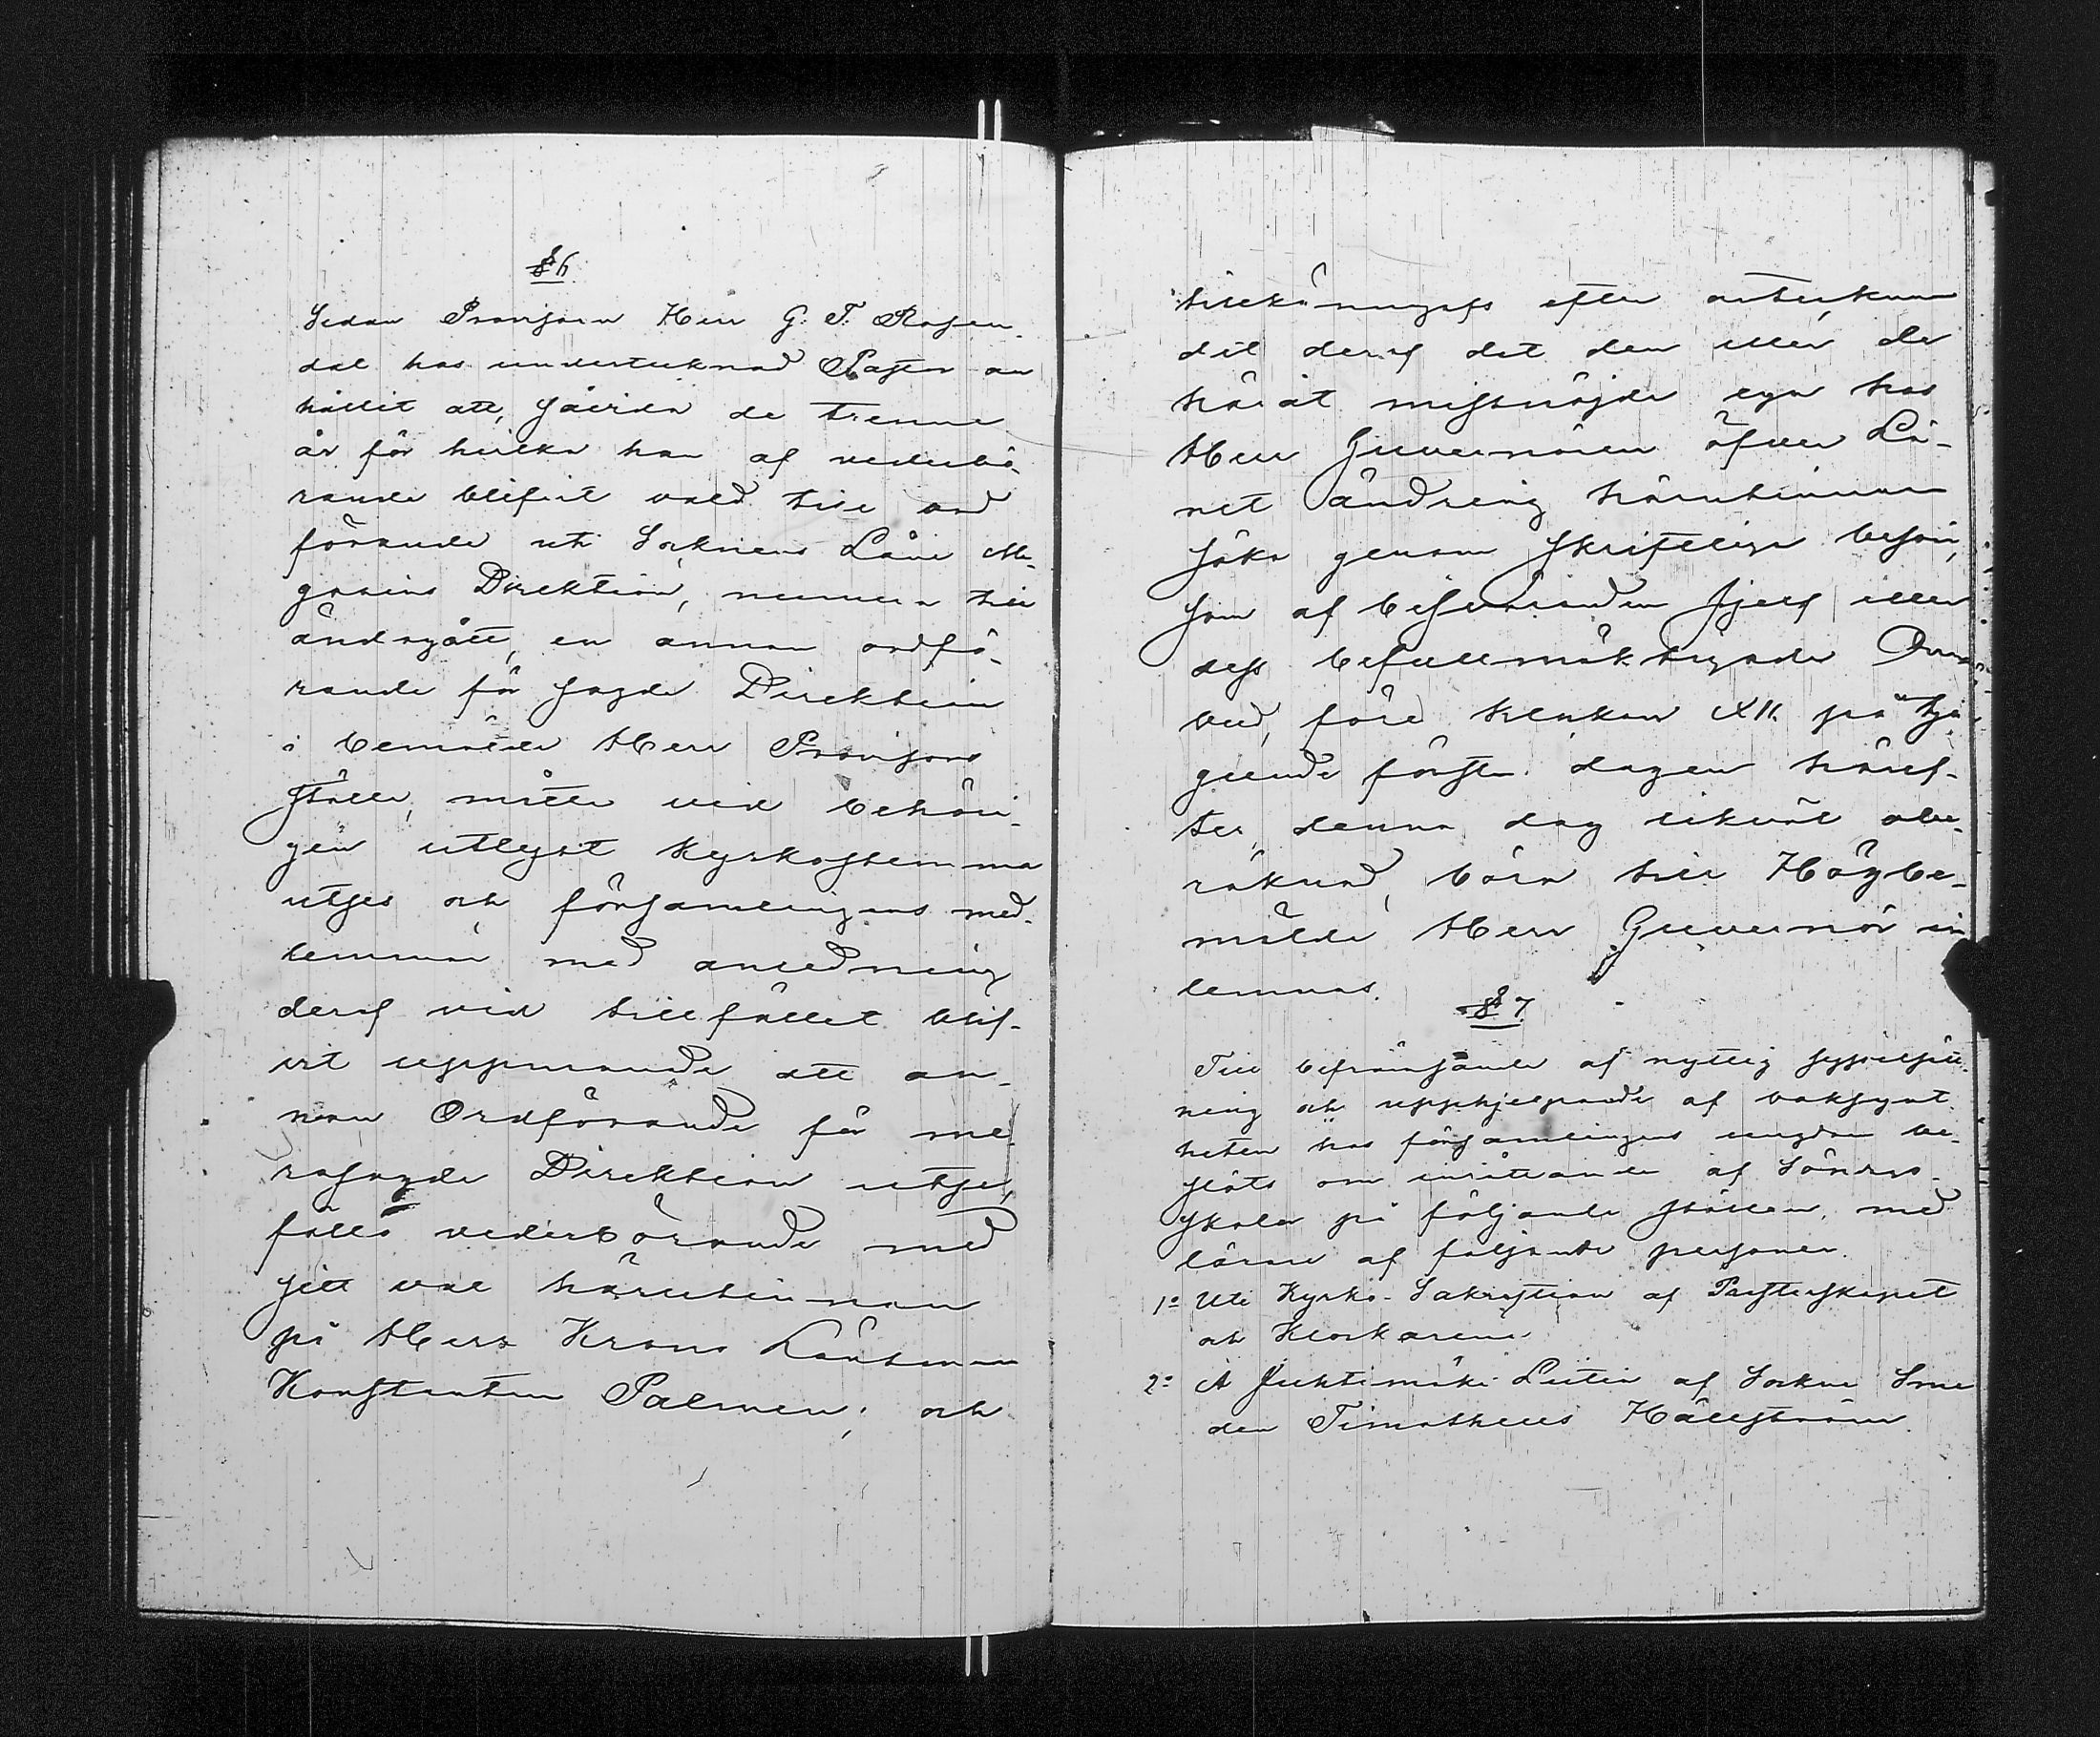 § 6
Sedan Provisorn Herr G. T. Rosen-
dal hos undertecknad Pastor an
hållit att, såvida de trenne
år för hvilka han af vederbö-
rande blifvit vald till ord
förande uti Socknens Låne Ma-
gasins Direktion, numera till
ändagått, en annan ordfö-
rande för sagde Direktion
i bemälde Herr Provisors
ställe, måtte vid behöri-
gen utlyst kyrkostemma
utses och församlingens med-
lemmar med anledning
deraf vid tillfället blif-
vit uppmanade att an-
nan Ordförande för me-
rasagde Direktion utse,
följs vederbörande med
sitt val härutinnan
på Herr Krono Länsman
Konstantin Palmen; och
tillkännagafs efter afkun
det deraf det den eller de
häråt missnöjde ega hos
Herr Guvernören öfver Lä-
net ändring härutinnan
söka genom skriftliga besvär,
som af besväranden sjelf eller
dess befullmäktigade Om-
bud, före klockan XII på
gunde första dagen häref-
ter, denna dag likväl obe-
räknad, böra till Högbe-
mälde Herr Guvernör in
lemnas.
§ 7
Till befrämjande af nyttig sysselsätt-
ning och upphjelpande af boksynt-
heten hos församlingens ungdom be-
slöts om inrättande af Söndags-
skolor på följande ställen, med
lärare af följande personer.
1o Uti Kyrko-Sakristian af Presterskapet
och Klockarene
2o Å Juhtimäki Leitir af Socknе Sme
den Timotheus Hällström.